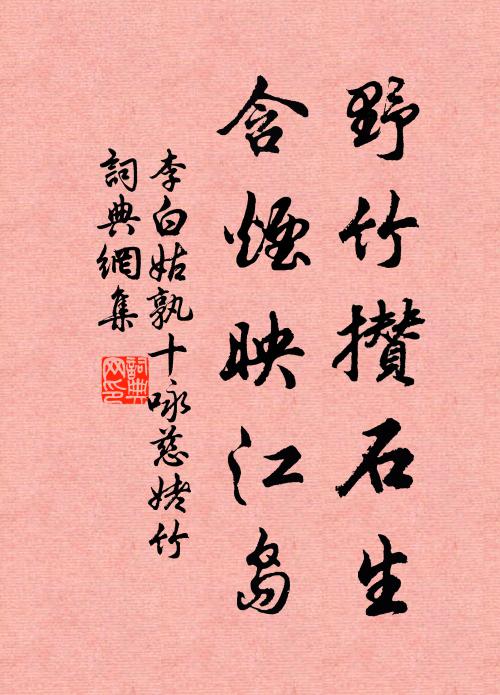 野竹攢石生
含煙映江島
李白姑孰十咏慈姥竹
詞典網集
詞典網印